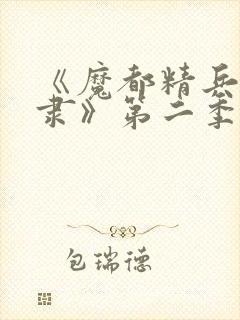 《魔都精兵
隶》第二季
包瑞德